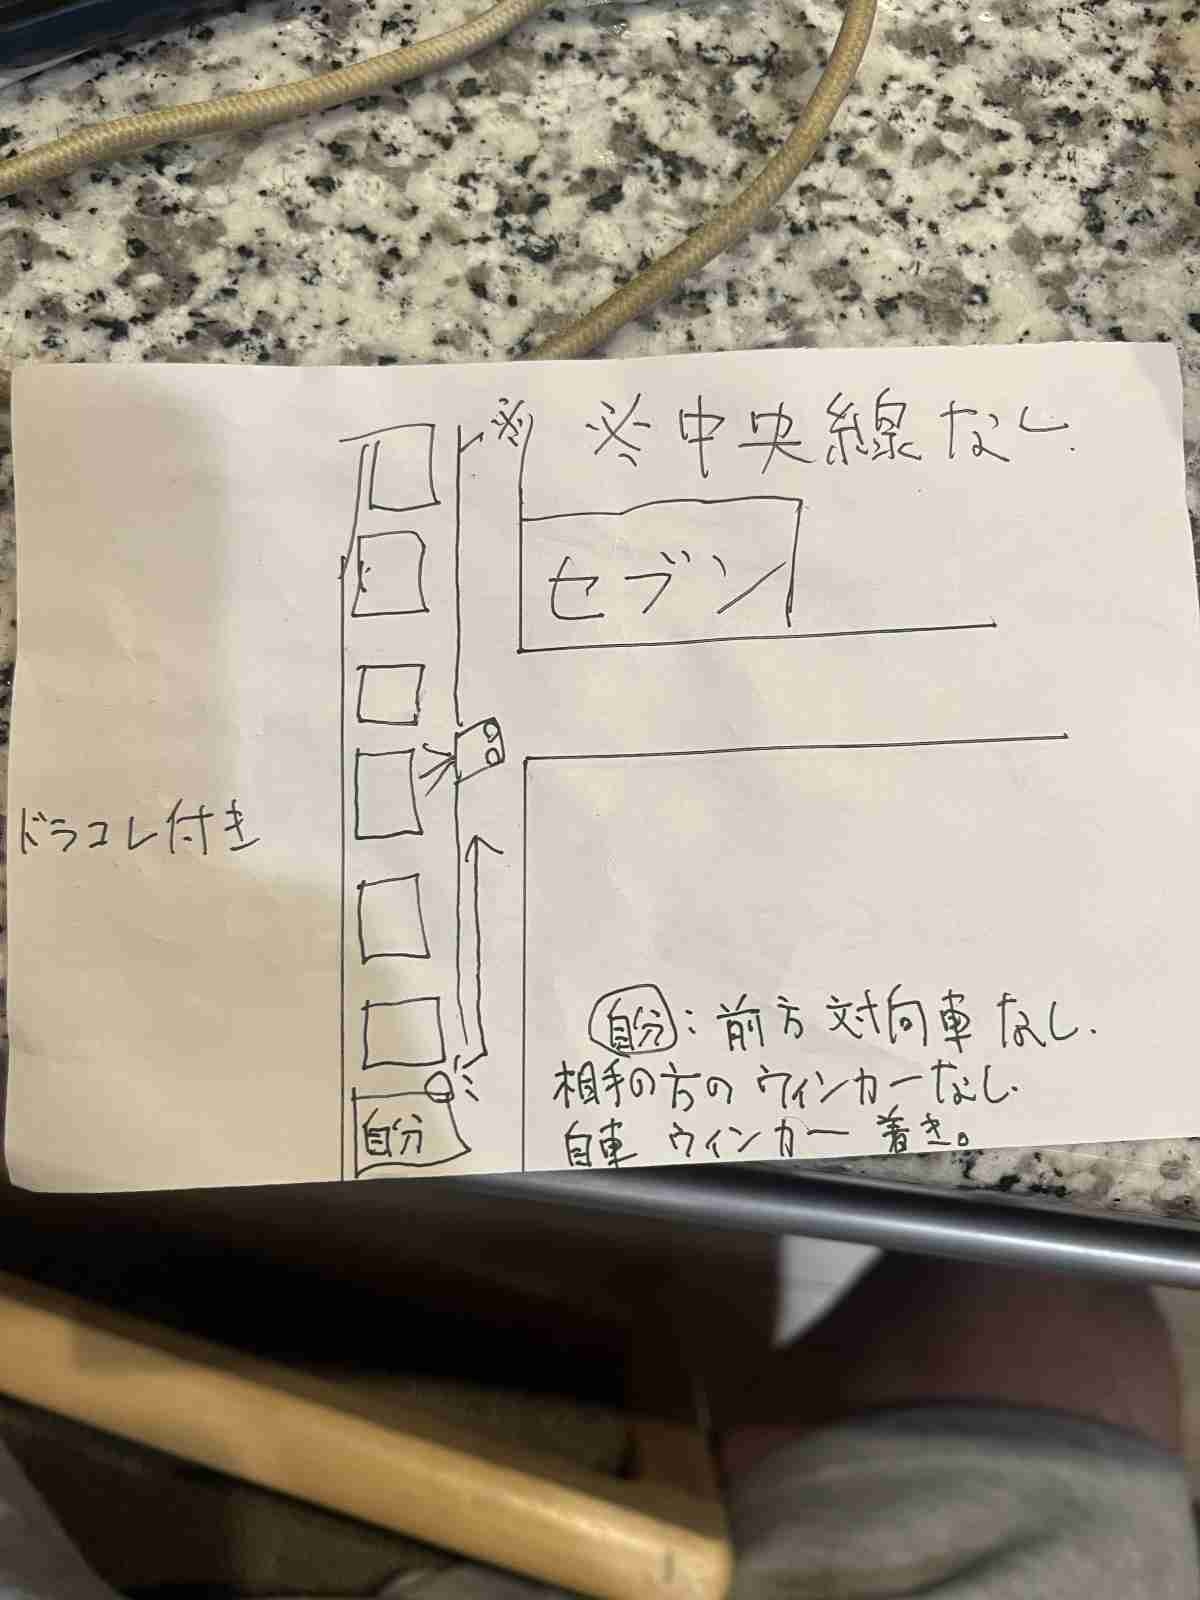 ※
※中央線なし
セブン
ドラコレ付き
自分:前方対向車なし.
相手の方のウィンカーなし.
自車ウィンカー着き。
自分